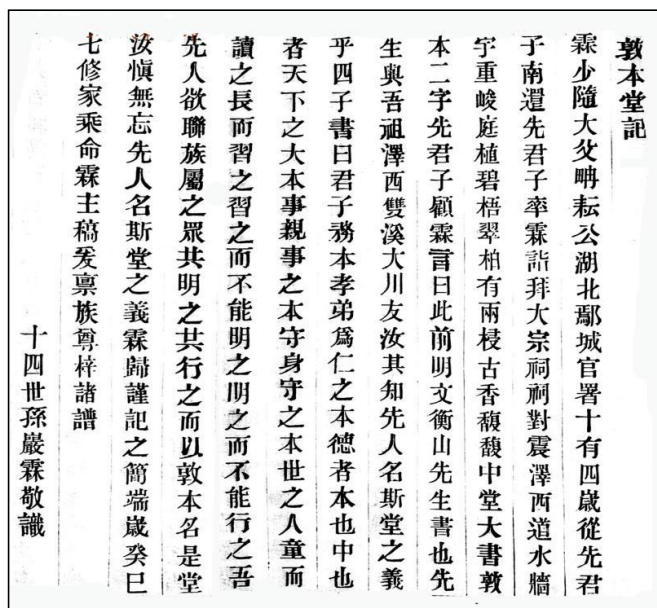 敦本堂記
霖少隨大父畊耘公湖北鄖城官署十有四歲從先君
子南還先君子率霖詣拜大宗祠祠對震澤西道水牆
宇重峻庭植碧梧翠柏有兩桜古香馥馥中堂大書敦
本二字先君子顧霖言曰此前明文衡山先生書也先
生與吾祖澤西雙溪大川友汝其知先人名斯堂之義
乎四子書曰君子務本孝弟爲仁之本德者本也中也
者天下之大本事親事之本守身守之本世之人童而
讀之長而習之習之而不能明之明之而不能行之吾
先人欲聯族屬之眾共明之共行之而以敦本名是堂
汝愼無忘先人名斯堂之義霖歸謹記之簡端歲癸巳
七修家乘命霖主稿爰稟族尊梓諸譜
十四世孫嚴霖敬識